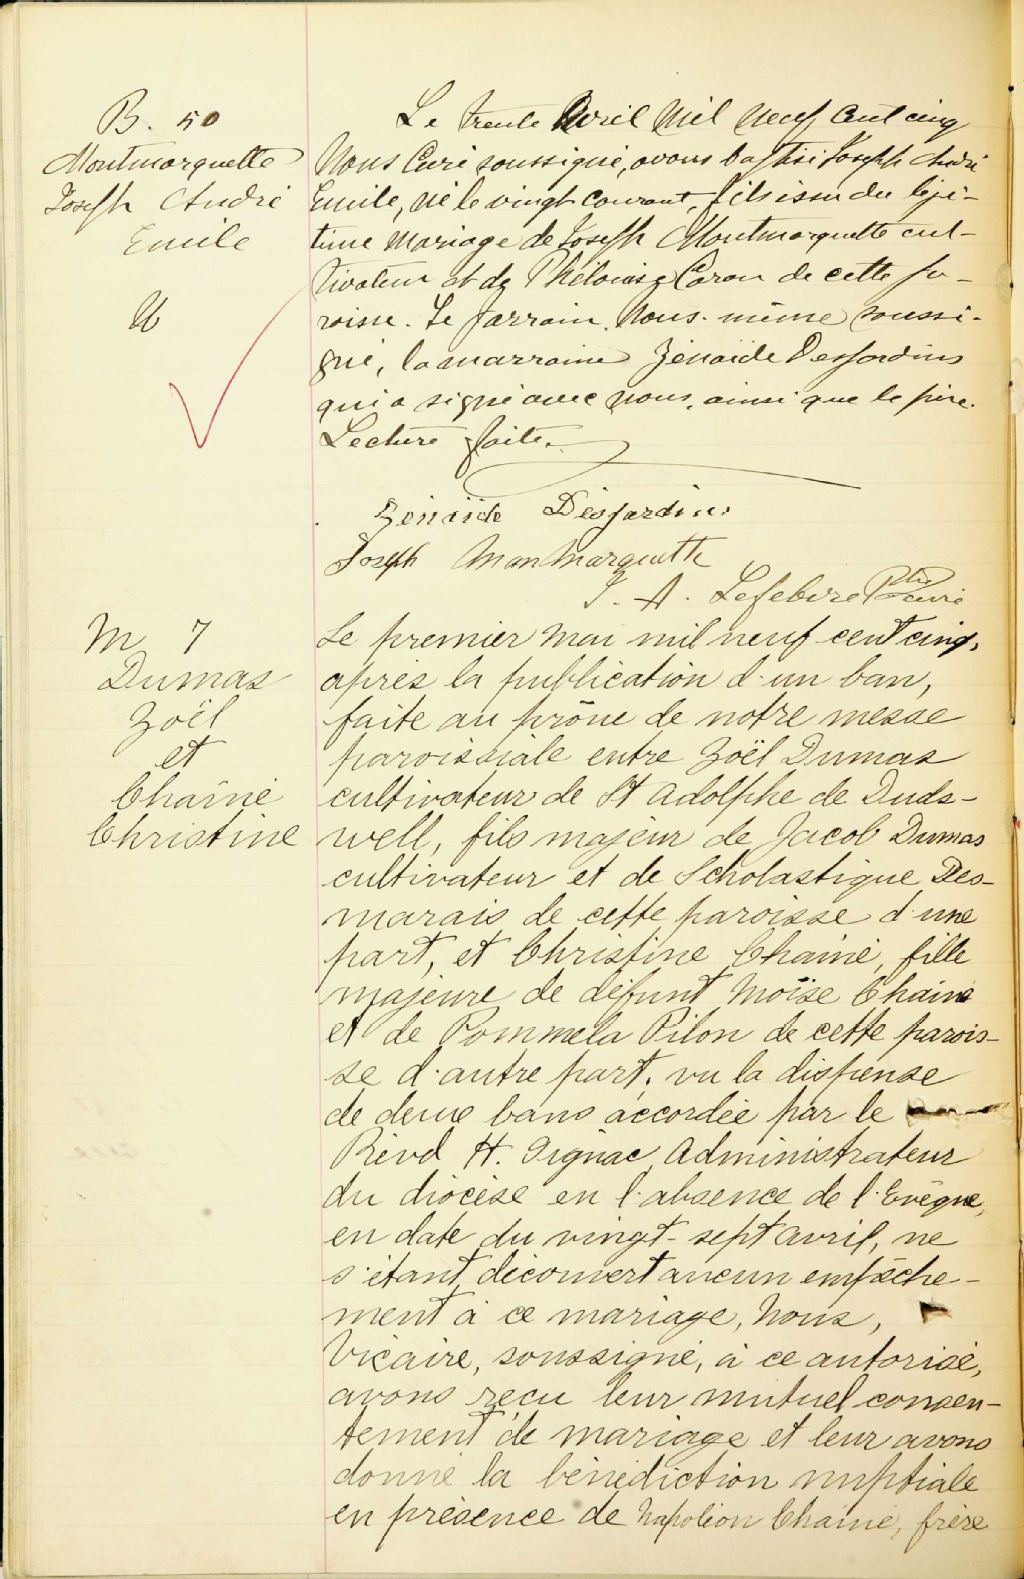 B. 50
Montmarquette
Joseph André
Emile
Le trente Avril Mil Neuf Cent cinq
Nous Curé soussigné, avons baptisé Joseph André
Emile, né le vingt courant, fils issu du légi-
time Mariage de Joseph Montmarquette cul-
tivateur et de Philomise Caron de cette pa-
roisse. Le parrain Nous-même soussi-
gné, la marraine Zénaïde Desjardins
qui a signé avec nous, ainsi que le père.
Lecture faite.
Zénaïde Desjardins
Joseph Monmarquette
J. A. Lefebvre Ptre Curé
M 7
Dumas
Zoël
et
Chaîné
Christine
Le premier mai mil neuf cent cinq,
après la publication d'un ban,
faite au prône de notre messe
paroissiale entre Zoël Dumas
cultivateur de St Adolphe de Duds-
well, fils majeur de Jacob Dumas
cultivateur et de Scholastique Des-
marais de cette paroisse d'une
part, et Christine Chainé, fille
majeure de défunt Moïse Chainé
et de Pommela Pilon de cette parois-
se d'autre part, vu la dispense
de deux bans accordée par le
Révd H. Gignac Administrateur
du diocèse en l'absence de l'Evêque,
en date du vingt-sept avril, ne
s'étant découvert aucun empêche-
ment à ce mariage, Nous,
Vicaire, soussigné, à ce autorisé,
avons reçu leur mutuel consen-
tement de mariage et leur avons
donné la bénédiction nuptiale
en présence de Napoléon Chainé, frère